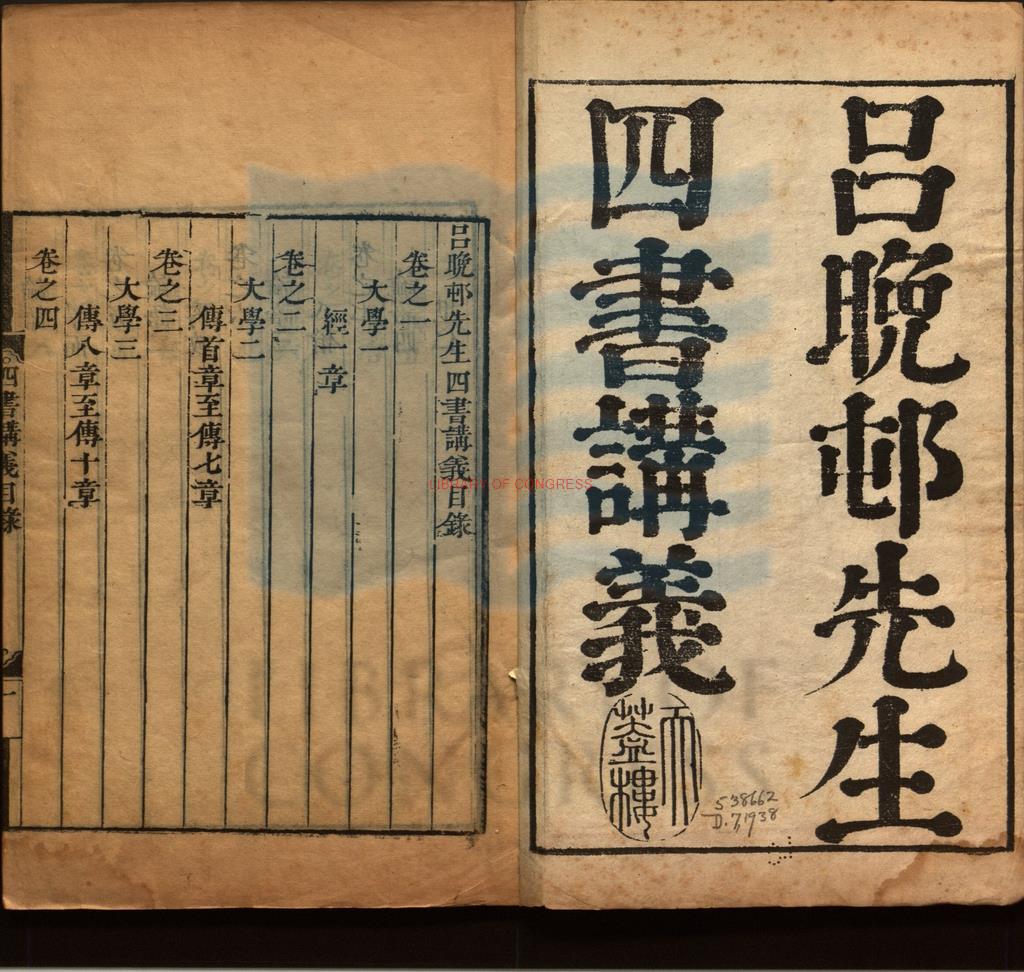 呂晚邨先生
四書講義
天蓋樓
538662
D.7,1938
呂晚邨先生四書講義目錄
卷之一
大學一
經一章
卷之二
大學二
傳首章至傳七章
卷之三
大學三
傳八章至傳十章
卷之四
四書講義目錄
一
LIBRARY OF CONGRESS